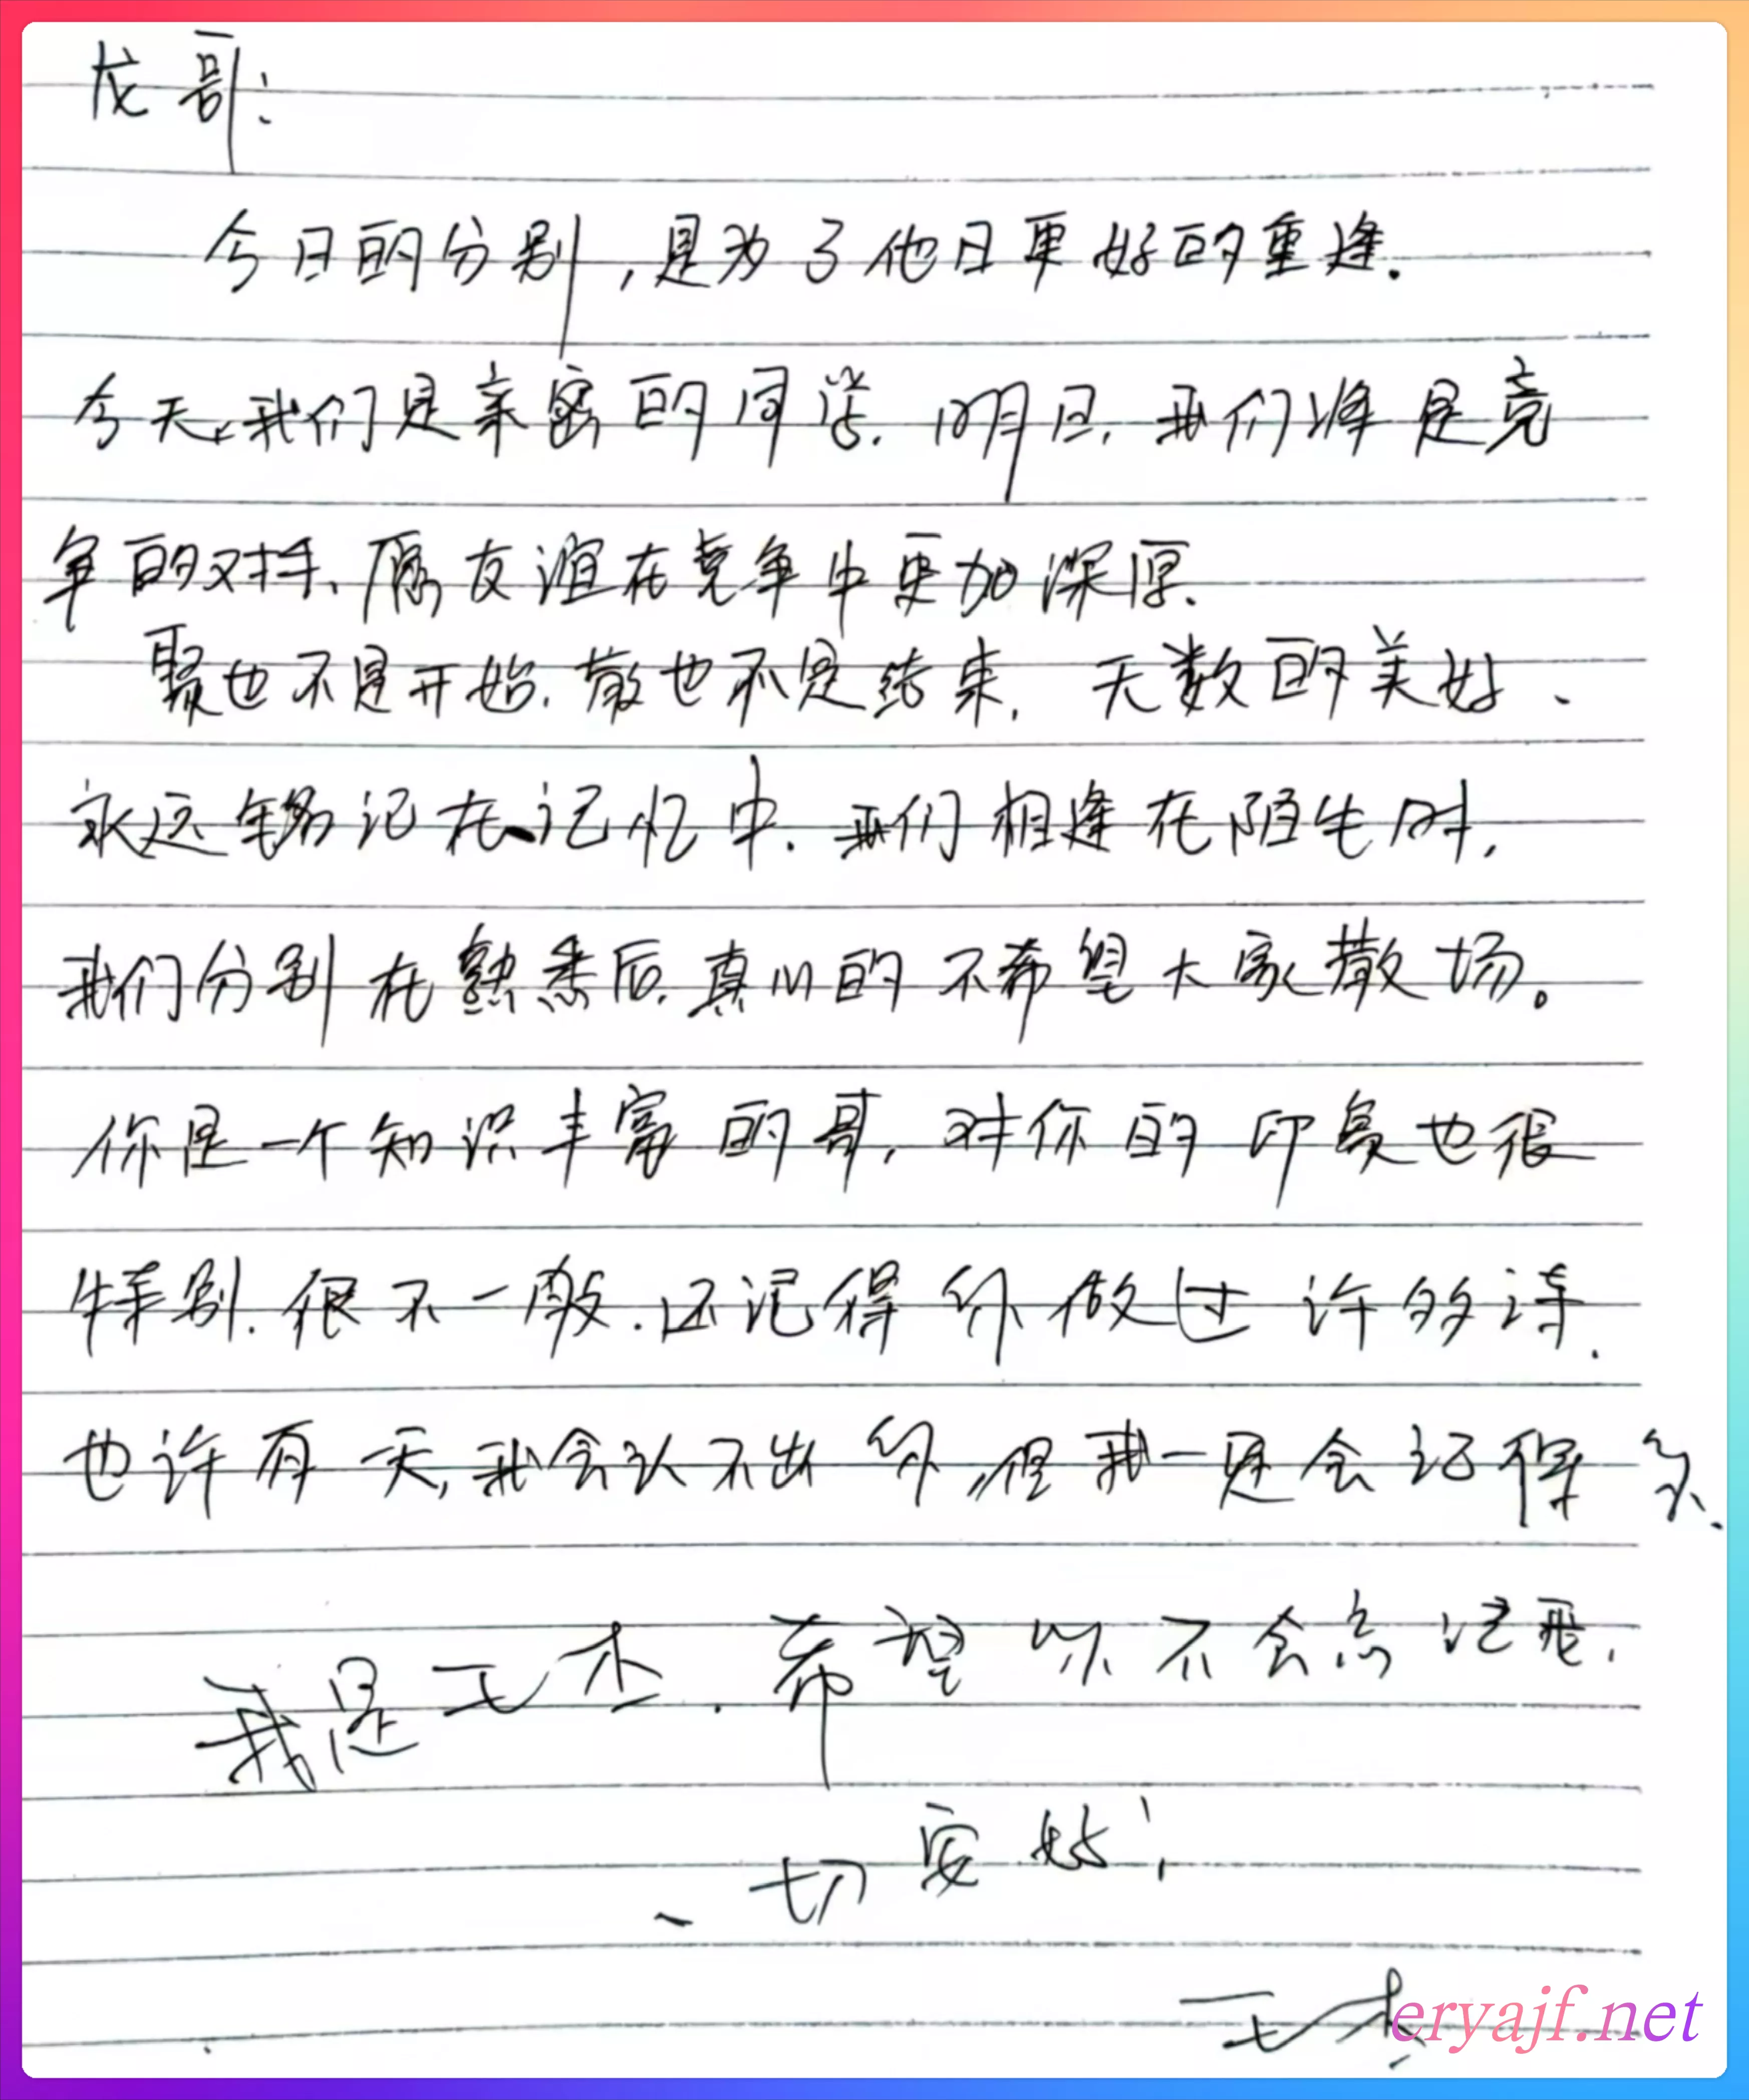 龙哥：
今日的分别，是为了他日更好的重逢.
今天,我们是亲密的同学.明日,我们将是竞
争的对手、愿友谊在竞争中更加深厚.
聚也不是开始.散也不是结束,无数的美好、
永远铭记在记忆中.我们相逢在陌生时,
我们分别在熟悉后,真心的不希望大家散场。
你是一个知识丰富的哥,对你的印象也很
特别.很不一般.还记得你做过许多诗.
也许有一天,我会认不出你,但我一定会记得你、
我是王杰.希望你不会忘记我.
一切安好!
王杰
eryajf.net